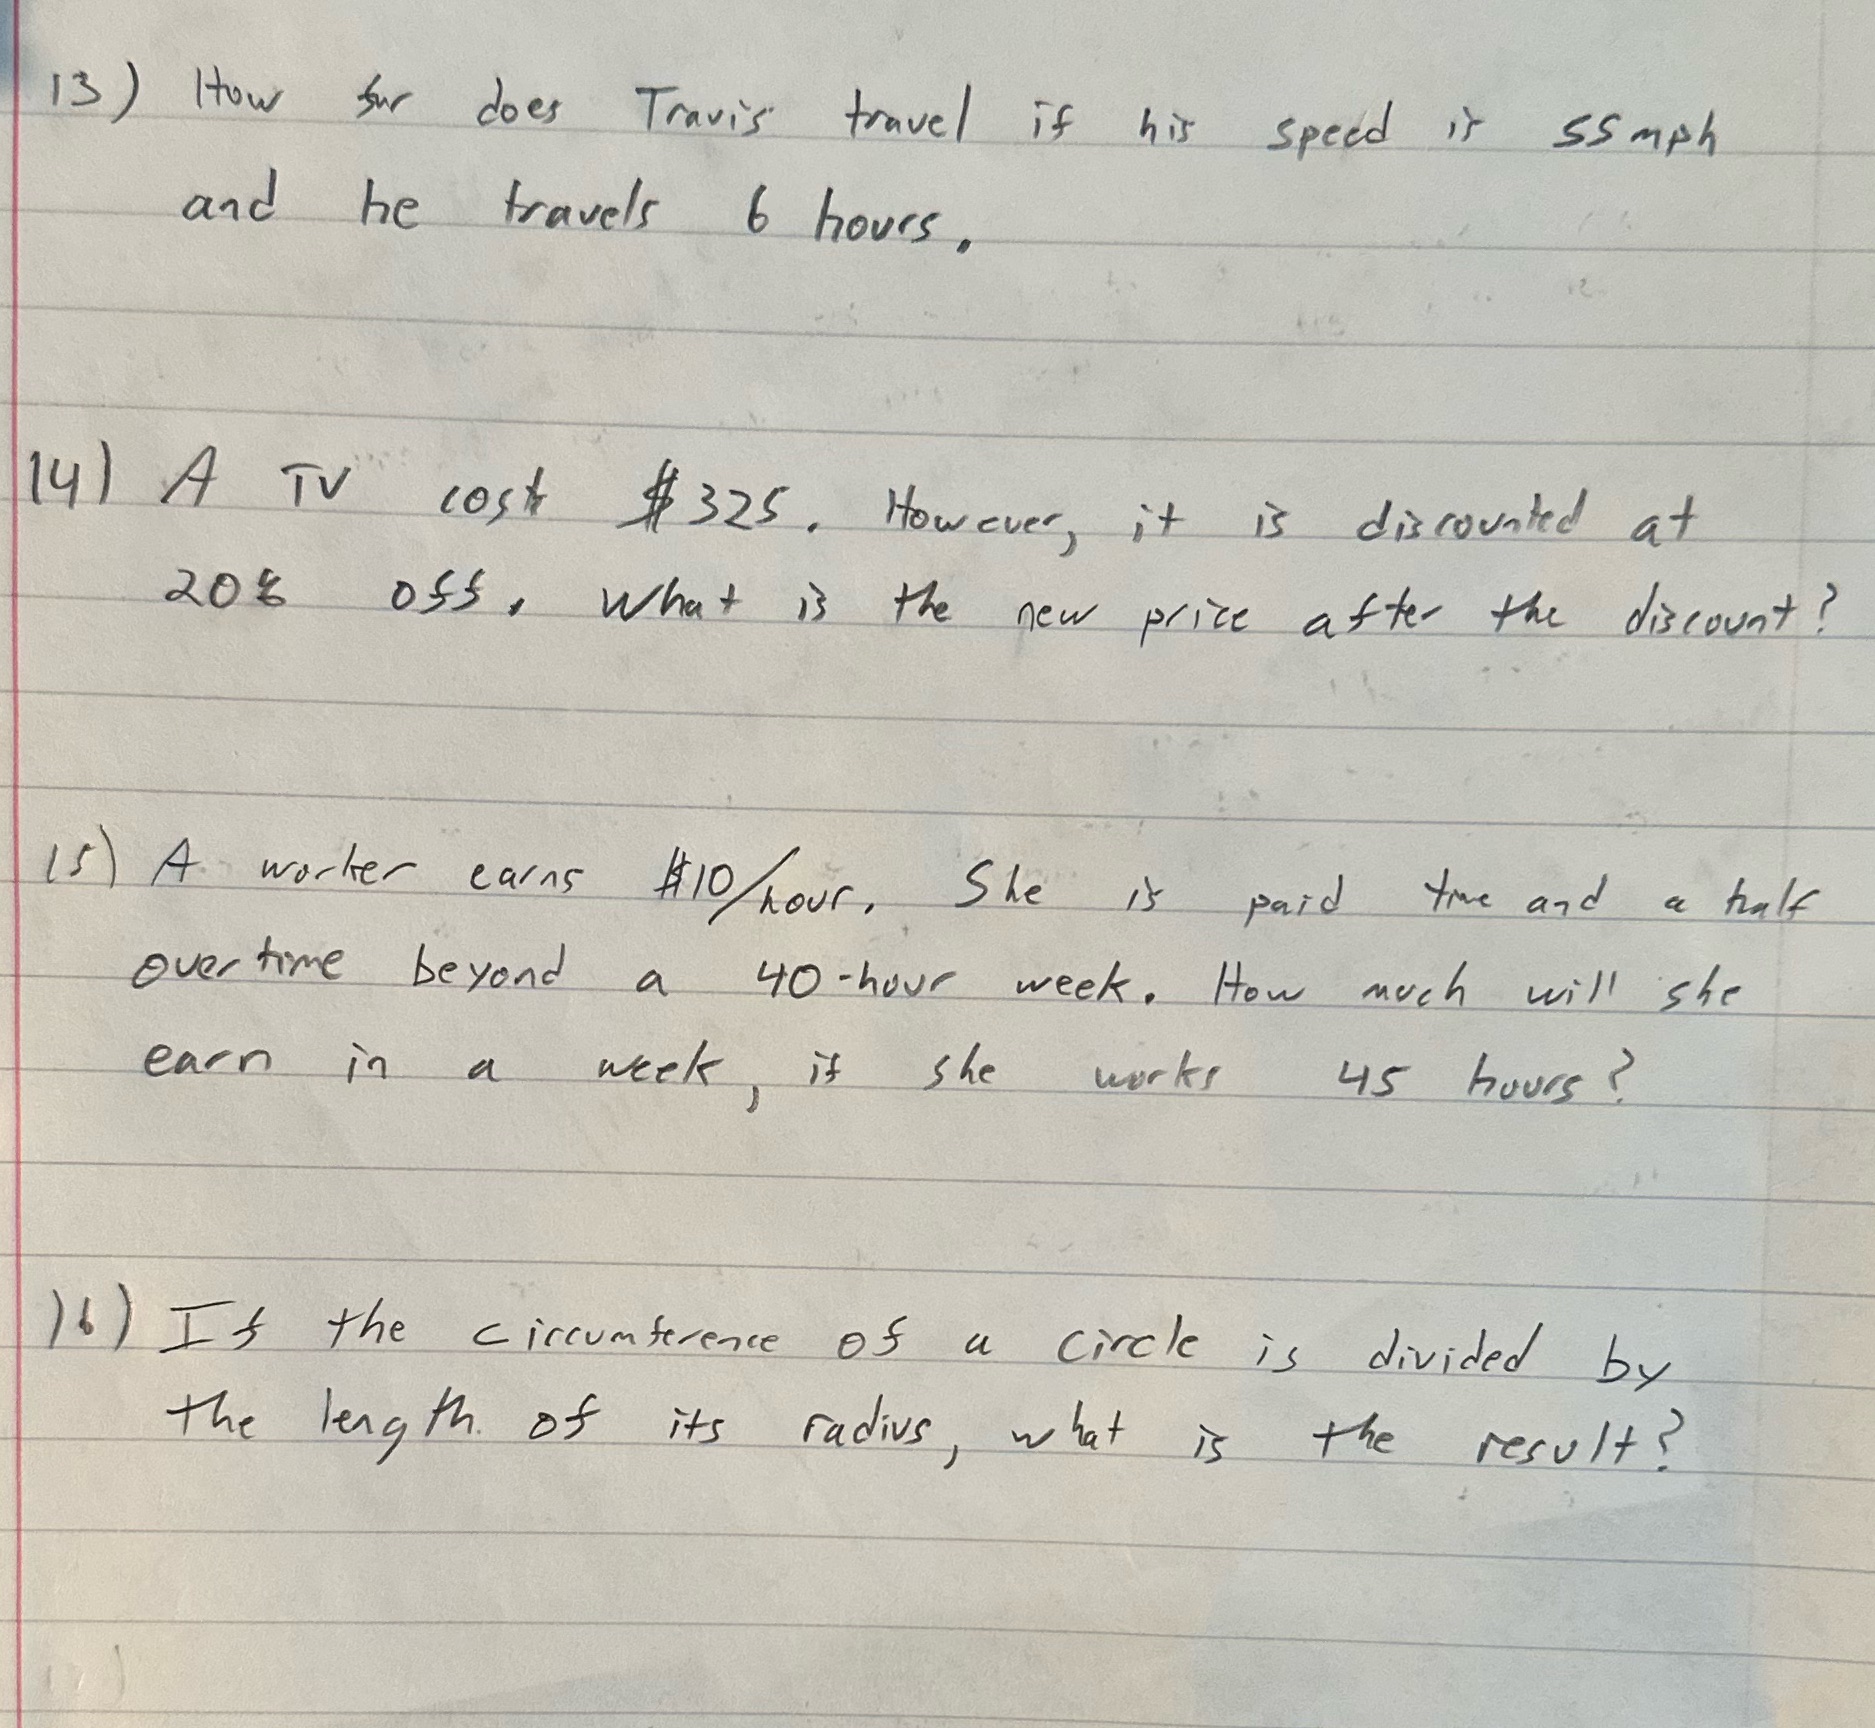 13) How far does Travis travel if his speed is 55 mph
and he travels 6 hours.
14) A TV cost $325. However, it is discounted at
20% off. What is the new price after the discount?
15) A worker earns $10/hour. She is paid time and a half
overtime beyond a 40-hour week. How much will she
earn in a week, if she works 45 hours?
16) If the circumference of a circle is divided by
the length of its radius, what is the result?
17)